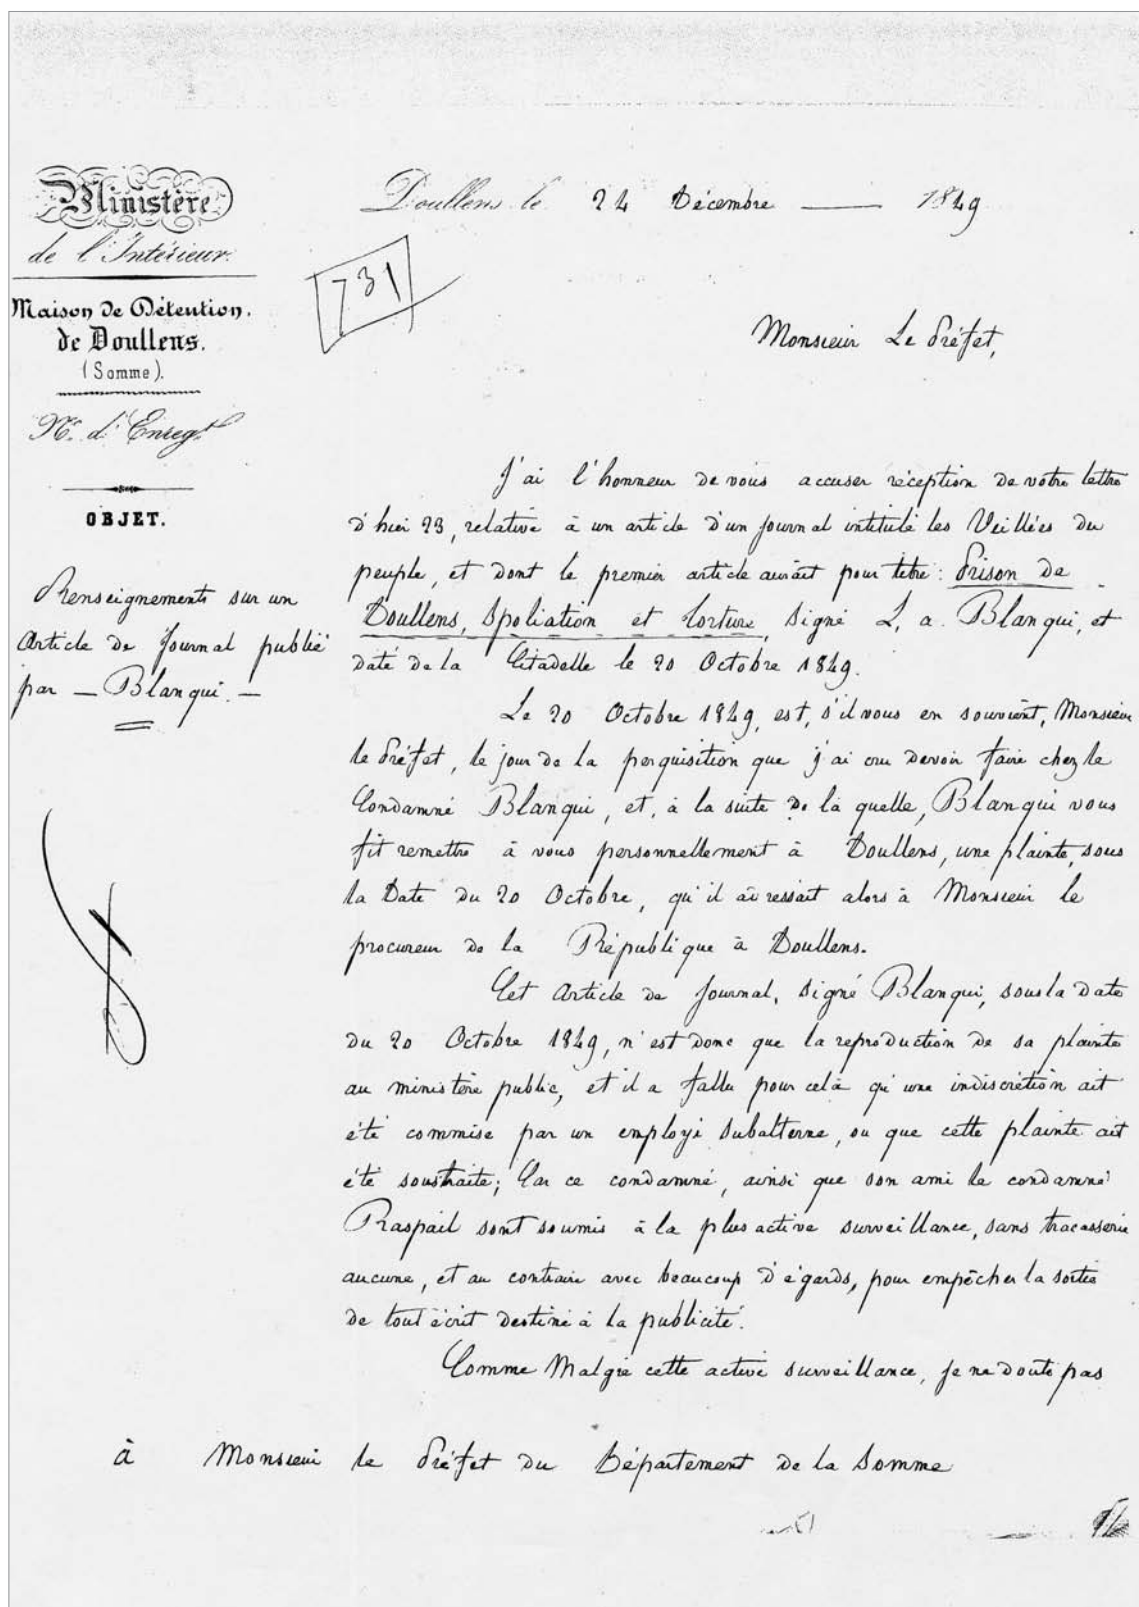 Ministère
de l'Intérieur.
Maison de Détention.
de Doullens.
(Somme).
N.º d'Enreg.t
OBJET.
Renseignements sur un
Article de Journal publié
par — Blanqui. —
Doullens le 24 Décembre — 1849
731
Monsieur Le Préfet,
J'ai l'honneur de vous accuser réception de votre lettre
d'hier 23, relative à un article d'un journal intitulé les Veillées du
peuple, et dont le premier article aurait pour titre: Prison de
Doullens, Spoliation et torture, signé L, a. Blanqui, et
daté de la Citadelle le 20 Octobre 1849.
Le 20 Octobre 1849, est, s'il vous en souvient, Monsieur
le Préfet, le jour de la perquisition que j'ai cru devoir faire chez le
Condamné Blanqui, et, à la suite de la quelle, Blanqui vous
fit remettre à vous personnellement à Doullens, une plainte, sous
la Date du 20 Octobre, qu'il adressait alors à Monsieur le
procureur de la République à Doullens.
Cet Article de Journal, signé Blanqui, sous la Date
du 20 Octobre 1849, n'est donc que la reproduction de sa plainte
au ministère public, et il a fallu pour celà qu'une indiscrétion ait
été commise par un employé subalterne, ou que cette plainte ait
été soustraite; Car ce condamné, ainsi que son ami le condamné
Raspail sont soumis à la plus active surveillance, sans tracasserie
aucune, et au contraire avec beaucoup d'égards, pour empêcher la sortie
de tout écrit destiné à la publicité.
Comme Malgré cette active surveillance, je ne doute pas
à Monsieur le Préfet du Département de la Somme